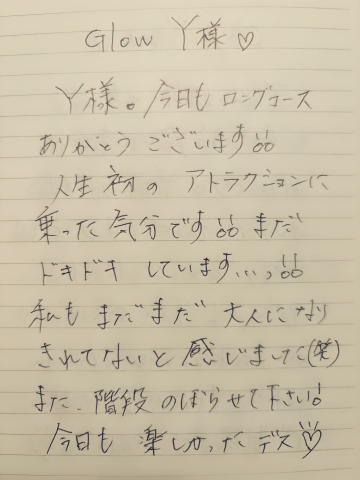 Glow Y様♡
Y様。今日も ロングコース
ありがとう ございます!!
人生 初の アトラクションに
乗った 気分です!! まだ
ドキドキ しています...,!!
私も まだまだ 大人になり
きれてないと 感じました(笑)
また、階段 のぼらせて下さい!
今日も 楽しかったデス♡